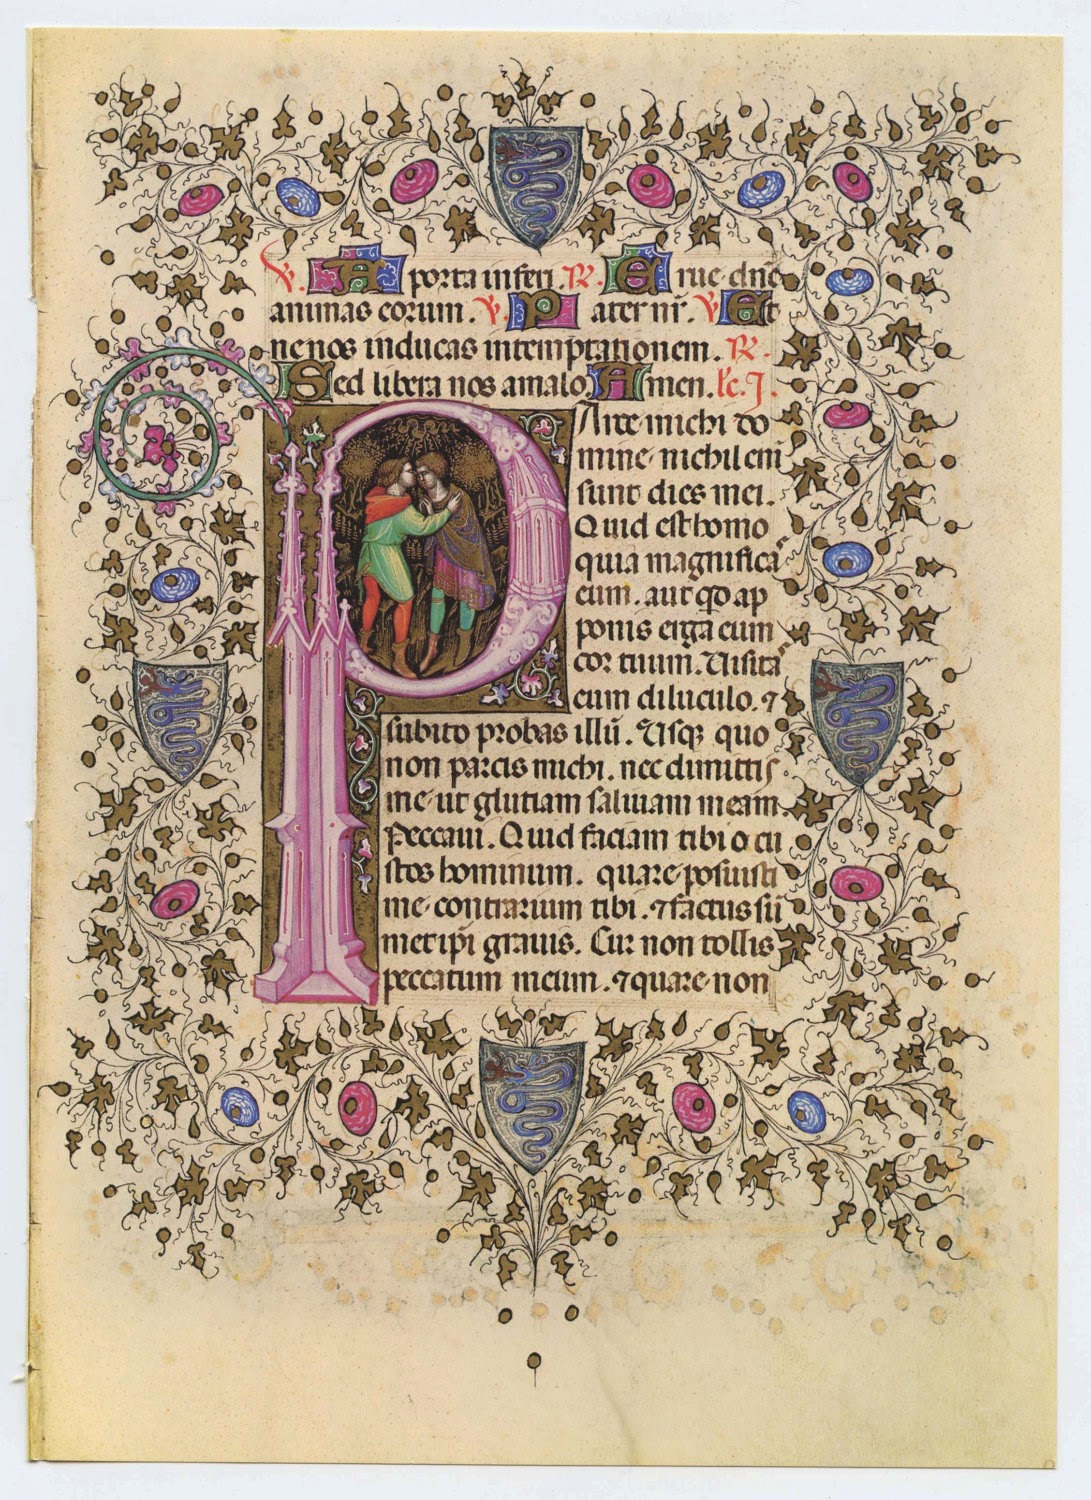 V. A porta inferi. R. Erue dn̄e
animas eorum. V. Pater nr̄. V. Et
ne nos inducas intemptationem. R.
Sed libera nos amalo. Amen. lc̄. J.
Parce michi do
mine nichil eni
sunt dies mei.
Quid est homo
quia magnificas
eum. aut qd ap
ponis erga eum
cor tuum. Visitas
eum diluculo. ⁊
subito probas illū. Usqꝫ quo
non parcis michi. nec dimittis
me ut glutiam saluiam meam.
Peccaui. Quid faciam tibi o cu
stos hominum. quare posuisti
me contrarium tibi. ⁊ factus sū
met ip̄i grauis. Cur non tollis
peccatum meum. ⁊ quare non